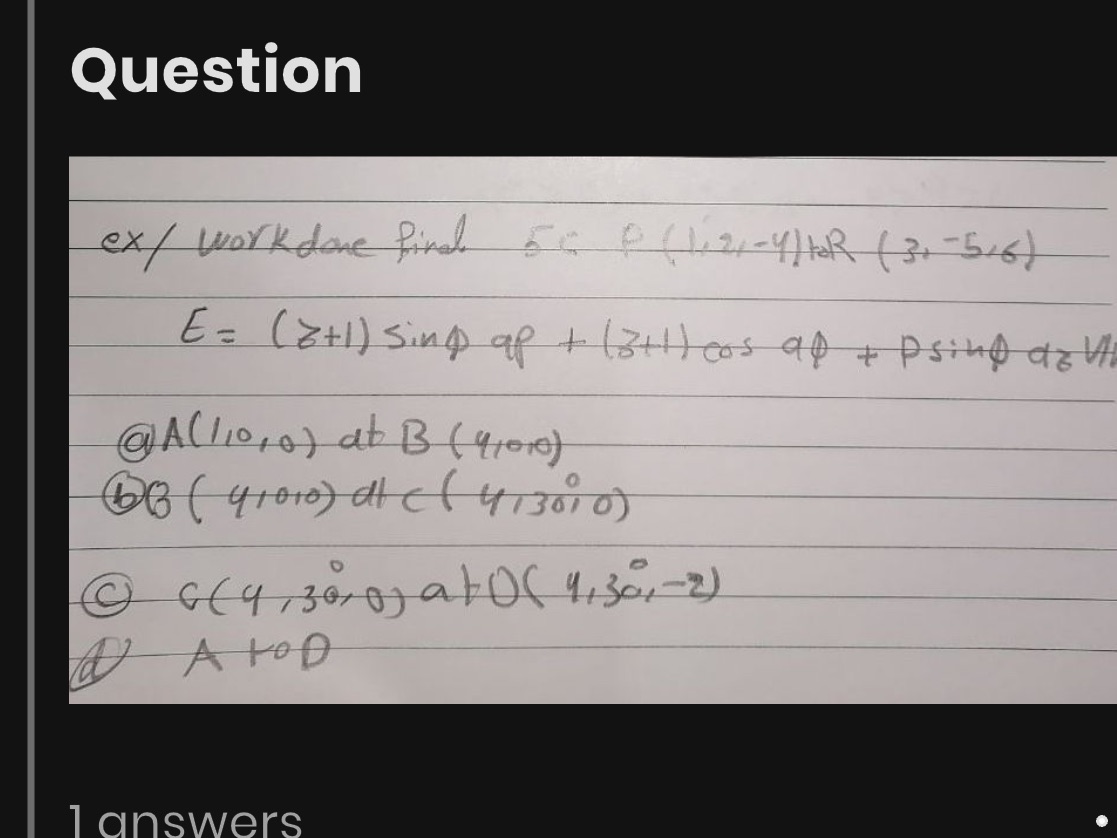 Question
ex/ workdone find 5C P(1,2,-4) to R (3,-5,6)
E = (z+1) sinϕ aρ + (z+1) cos aϕ + ρ sinϕ az
ⓐ A(1,0,0) at B (4,0,0)
ⓑ B (4,0,0) at C (4,30°,0)
ⓒ C(4,30°,0) at D( 4,30°,-2)
ⓓ A to D
1 answers